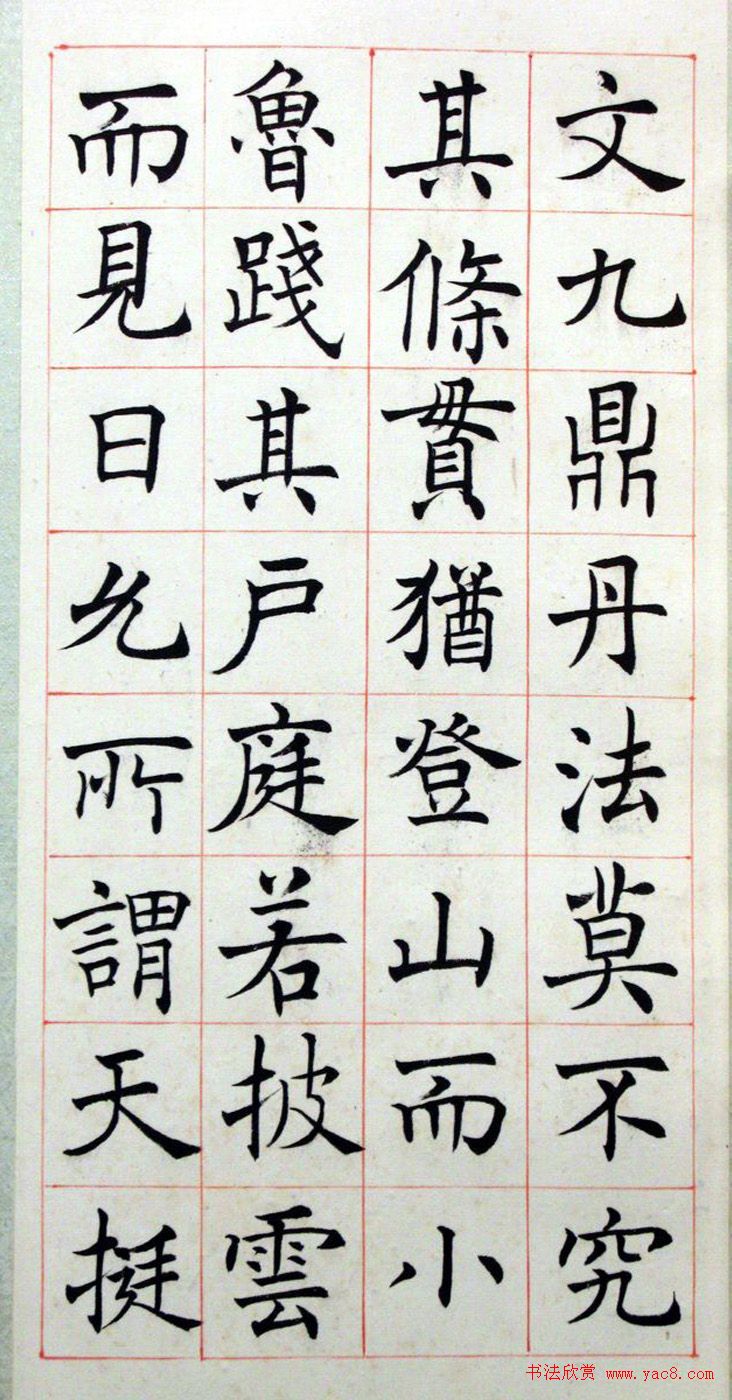 文九鼎丹法莫不究
其條貫猶登山而小
魯踐其戶庭若披雲
而見日允所謂天挺
书法欣赏 www.yac8.com